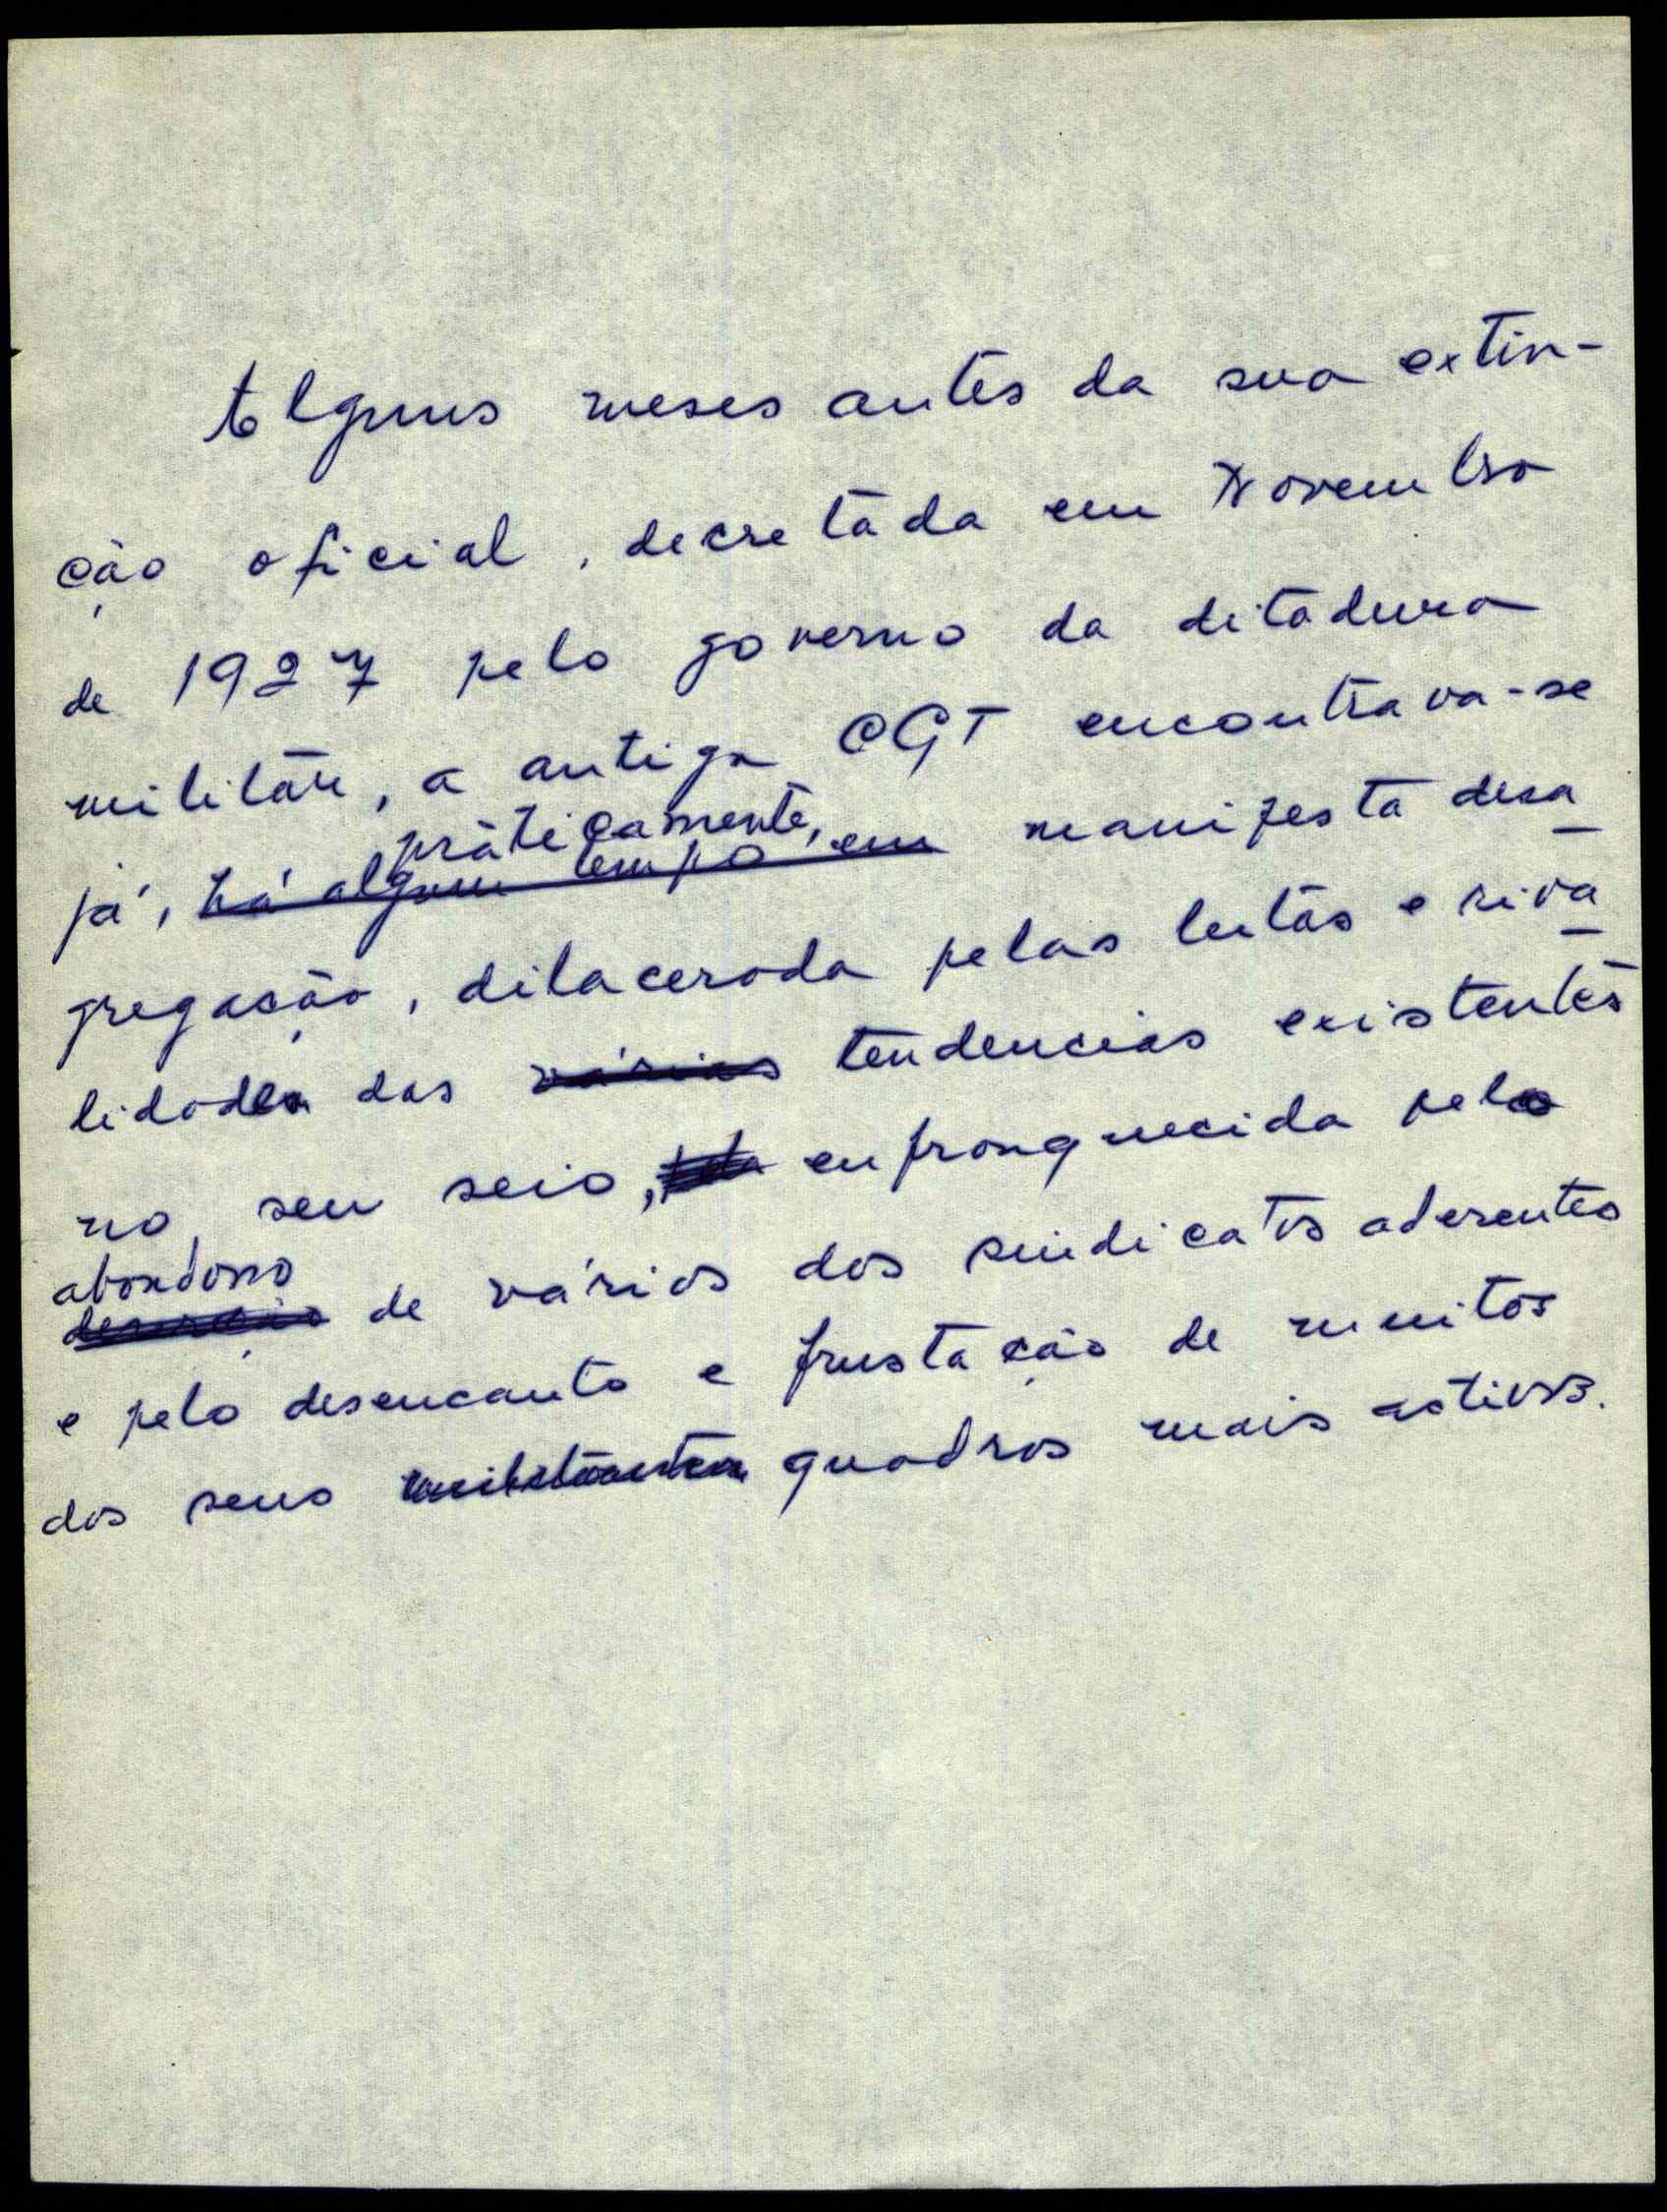 Alguns meses antes da sua extin-
ção oficial, decretada em Novembro
de 1927 pelo governo da ditadura
militar, a antiga CGT encontrava-se
práticamente,
já, há algum tempo em manifesta desa
gregação, dilacerada pelas lutas e riva
lidades das várias tendencias existentes
no seu seio, enfranquecida pelo
abandono
deserção de vários dos sindicatos aderentes
e pelo desencanto e frustação de muitos
dos seus militantes quadros mais activos.